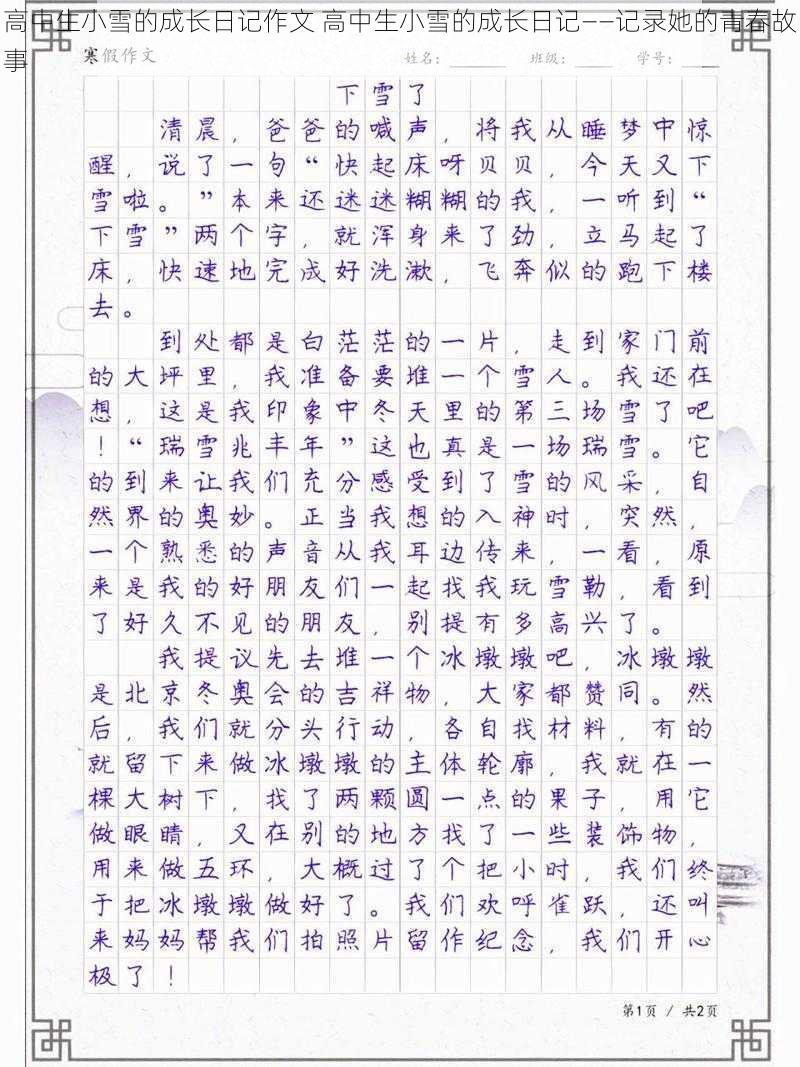 高中生小雪的成长日记作文 高中生小雪的成长日记——记录她的青春故
事
寒假作文 姓名：______ 班级：______ 学号：______
下雪了
清晨，爸爸的喊声，将我从睡梦中惊
醒，说了一句“快起床呀贝贝，今天又下
雪啦。”本来还迷迷糊糊的我，一听到“
下雪”两个字，就浑身来了劲，立马起了
床，快速地完成好洗漱，飞奔似的跑下楼
去。
到处都是白茫茫的一片，走到家门前
的大坪里，我准备要堆一个雪人。我还在
想，这是我印象中冬天里的第三场雪了吧
！“瑞雪兆丰年”这也真是一场瑞雪。它
的到来让我们充分感受到了雪的风采，自
然界的奥妙。正当我想的入神时，突然，
一个熟悉的声音从我耳边传来，一看，原
来是我的好朋友们一起找我玩雪勒，看到
了好久不见的朋友，别提有多高兴了。
我提议先去堆一个冰墩墩吧，冰墩墩
是北京冬奥会的吉祥物，大家都赞同。然
后，我们就分头行动，各自找材料，有的
就留下来做冰墩墩的主体轮廓，我就在一
棵大树下，找了两颗圆一点的果子，用它
做眼睛，又在别的地方找了一些装饰物，
用来做五环，大概过了个把小时，我们终
于把冰墩墩做好了。我们欢呼雀跃，还叫
来妈妈帮我们拍照片留作纪念，我们开心
极了！
第1页 / 共2页